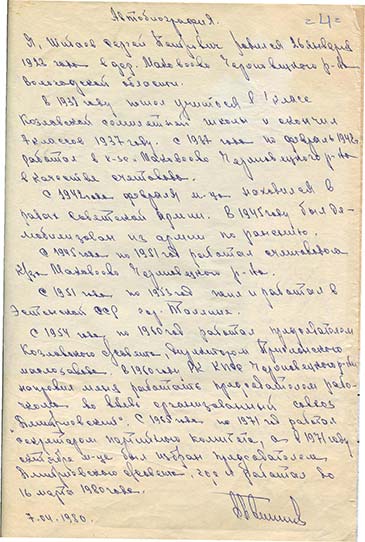 Автобиография.
= 4 =
Я, Сергей Петрович родился 26 января
1922 года в дер. Маковоово Череповецкого р-на
Вологодской области.
В 1931 году пошел учиться в 1 класс
Козловской семилетней школы и окончил
7 классов 1937 году. С 1937 года по февраль 1942
работал в к-зе Череповецкого р-на
в качестве счетовода.
С 1942 года февраля м-ца находился в
рядах Советской Армии. В 1945 году был де-
мобилизован из армии по ранению.
С 1945 года по 1951 год работал счетоводом
к/за Череповецкого р-на.
С 1951 года по 1953 год жил и работал в
Эстонской ССР гор. Таллин.
С 1954 года по 1960 год работал председателем
Козловского с/совета,
маслозавода. В 1960 году РК КПСС Череповецкого р-на
меня работать председателем рабо-
чкома во вновь организованный совхоз
"Дмитриевский". С 1965 года по 1971 год работал
секретарем партийного комитета, а в 1971 году
м-це был избран председателем
Дмитриевского с/совета, где и работал до
16 марта 1980 года.
7.04.1980.